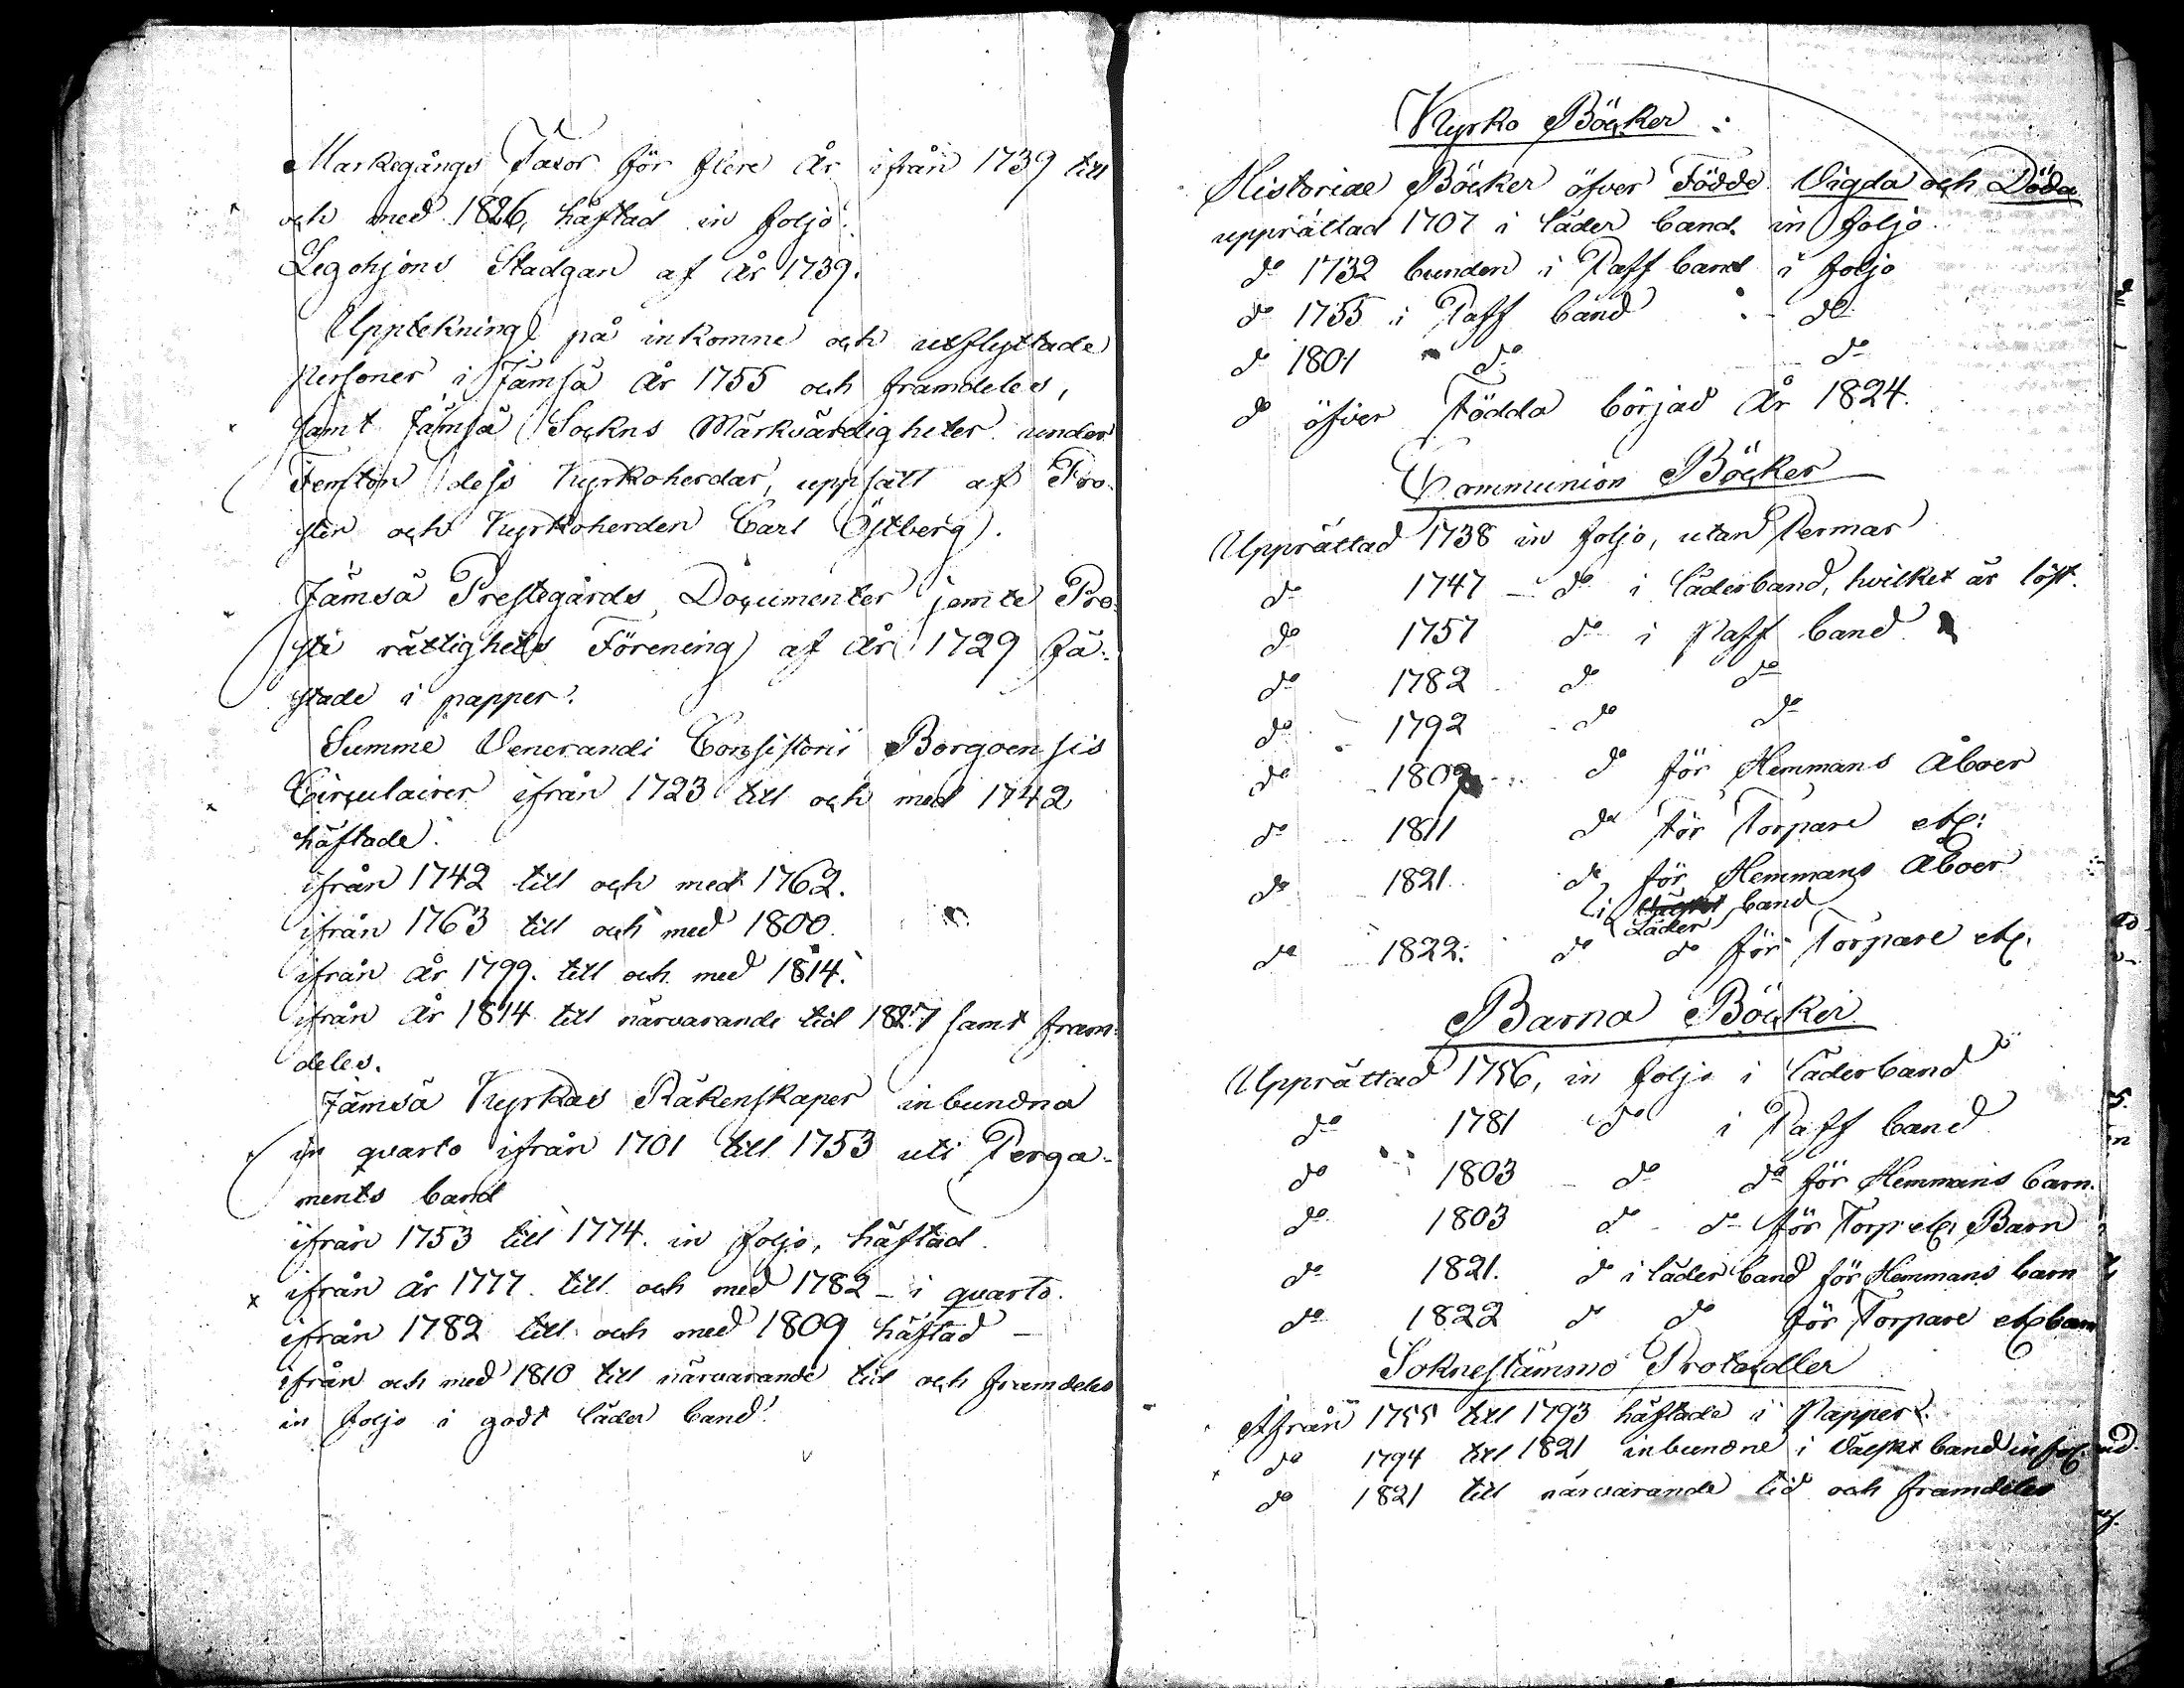 Markegångs Taxor för flere År ifrån 1739 till
och med 1826, häftad in foljo.
Legohjons Stadgan af År 1739.
Uppteckning på inkomne och utflyttade
personer i Jämsä År 1755 och framdeles,
samt Jämsä Sockns Märkvärdigheter under
Femton dess Kyrkoherdar, uppsatt af Pro-
sten och Kyrkoherden Carl Östberg.
Jämsä Prestegårds Documenter jemte Pre-
ste rättighets Förening af År 1729 fä-
stade i papper.
Summe Venerandi Consistorii Borgoensis
Circulairer ifrån 1723 till och med 1742
häftade.
ifrån 1742 till och med 1762.
ifrån 1763 till och med 1800.
ifrån År 1799. till och med 1814.
ifrån År 1814 till närvarande tid 1827 samt fram-
deles.
Jämsä Kyrkas Räkenskaper inbundna
in quarto ifrån 1701 till 1753 uti Perga-
ments band
ifrån 1753 till 1774. in foljo, häftad.
x ifrån År 1777. till och med 1782 - i quarto.
ifrån 1782 till och med 1809 häftad -
ifrån och med 1810 till närvarande tid och framdeles
in foljo i godt läder band.
Kyrko Böcker:
Historiae Böcker öfver Födde Vigda och Döda
upprättad 1707 i läder band. in foljo.
do 1732 bunden i Paff band i foljo
do 1755 i Paff band do
do 1801 do do
do öfver Födda börjad År 1824.
Communion Böcker
Upprättad 1738 in foljo, utan Permar
do 1747 - do i läderband, hvilket är löst.
do 1757 do i Paff band
do 1782 do do
do 1792 do do
do 1802 do för Hemmans Åboer
do 1811 do för Torpare etc:
do 1821. do för Hemmans Åboer
i band
Läder
do 1822: do do för Torpare etc.
Barna Böcker
Upprättad 1756, in foljo i läderband
do 1781 do i Paff band
do 1803 do do för Hemmans barn.
do 1803 do do för Torp etc. Barn
do 1821. do i läder band för Hemmans barn
do 1822 do do för Torpare etc barn
Soknestämmo Protocoller
Ifrån 1755 till 1793 häftade i Papper.
do 1794 till 1821 inbundne i band in fol:
do 1821 till närvarande tid och framdeles